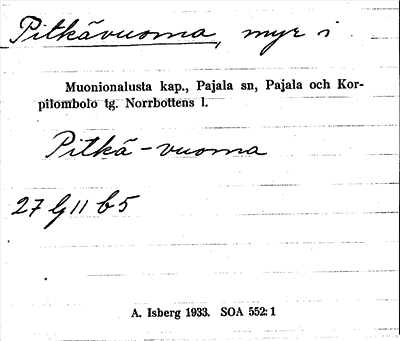 Pitkävuoma, myr i
Muonionalusta kap., Pajala sn, Pajala och Kor-
pilombolo tg. Norrbottens l.
Pitkä-vuoma
27 G 11 b 5
A. Isberg 1933. SOA 552: 1